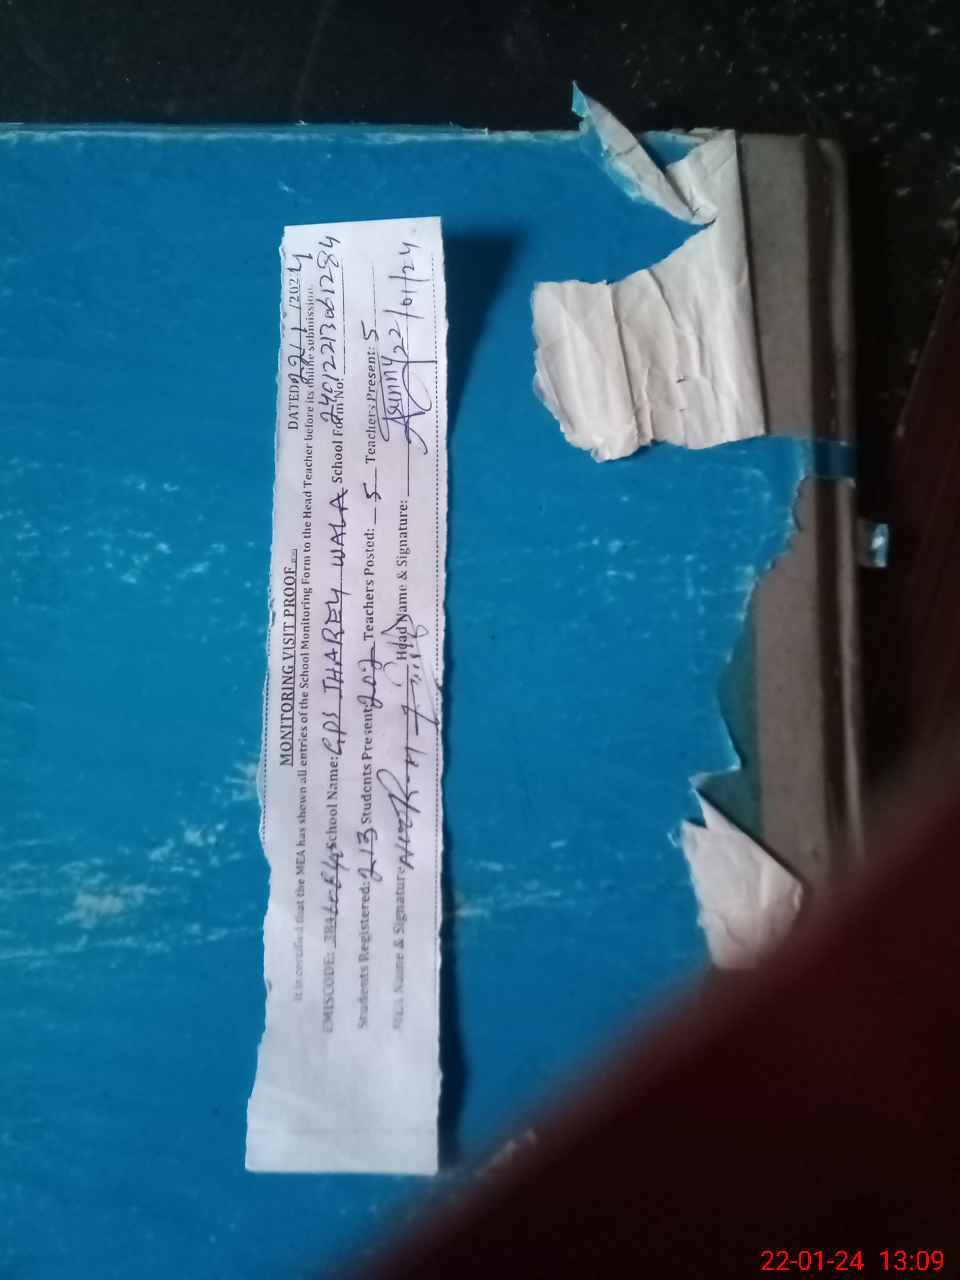 MONITORING VISIT PROOF
DATED 22/1/2024
It is certified that the MEA has shown all entries of the School Monitoring Form to the Head Teacher before its online submission.
EMISCODE: School Name: GPS JHAREY WALA School Form No: 24012213061284
Students Registered: 213 Students Present: 202 Teachers Posted: 5 Teachers Present: 5
MEA Name & Signature: Head Name & Signature: 22/01/24
22-01-24 13:09